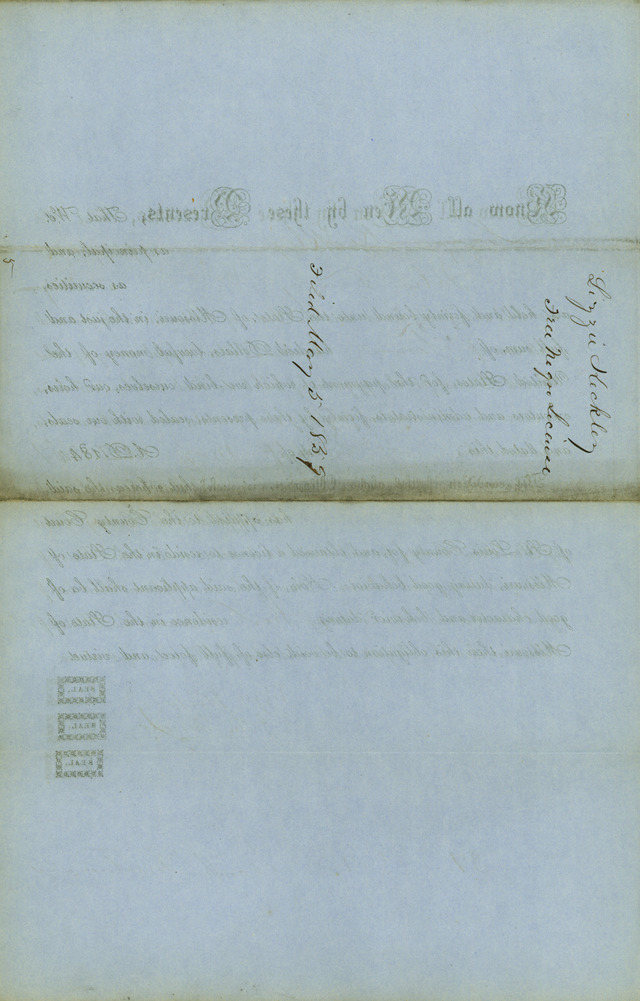 Lizzie Keckley
Free Negro License
Filed May 5 1859
5
Know all Men by these Presents, That We
as principal, and
as securities,
held and firmly bound unto the State of Missouri, in the just and
sum of Dollars, lawful money of the
United States, for the payment of which we bind ourselves, our heirs,
executors and administrators, firmly by these presents, sealed with our seals,
and dated this A.D. 184
The condition of the above obligation is such, that whereas the said
has applied to the County Court
of St. Louis County for and obtained license to reside in the State of
Missouri, during good behavior: Now, if the said applicant shall be of
good character and behavior during residence in the State of
Missouri, then this obligation to be void, else of full force and virtue.
SEAL.
SEAL.
SEAL.